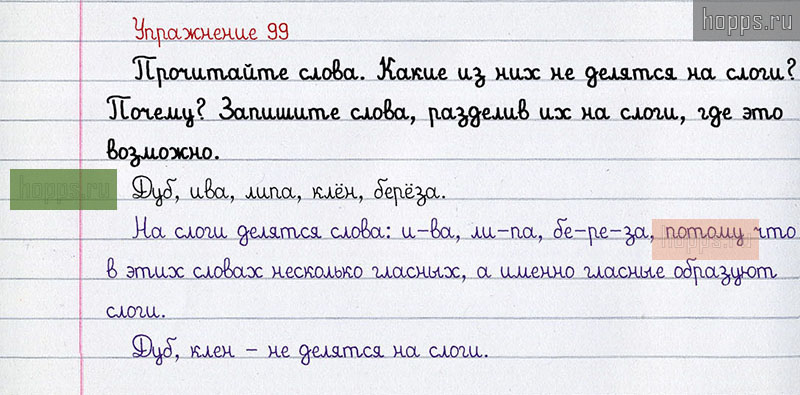 hopps.ru
Упражнение 99
Прочитайте слова. Какие из них не делятся на слоги?
Почему? Запишите слова, разделив их на слоги, где это
возможно.
hopps.ru
Дуб, ива, липа, клён, берёза.
На слоги делятся слова: и-ва, ли-па, бе-ре-за, потому что
hopps.ru
в этих словах несколько гласных, а именно гласные образуют
слоги.
Дуб, клен - не делятся на слоги.